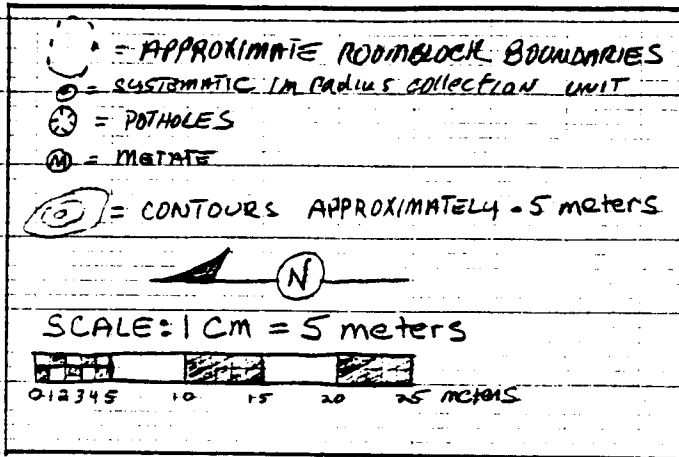 = APPROXIMATE ROOMBLOCK BOUNDARIES
= SYSTEMATIC 1m radius collection UNIT
= POTHOLES
M = METATE
= CONTOURS APPROXIMATELY .5 meters
N
SCALE: 1 Cm = 5 meters
0 1 2 3 4 5 10 15 20 25 meters